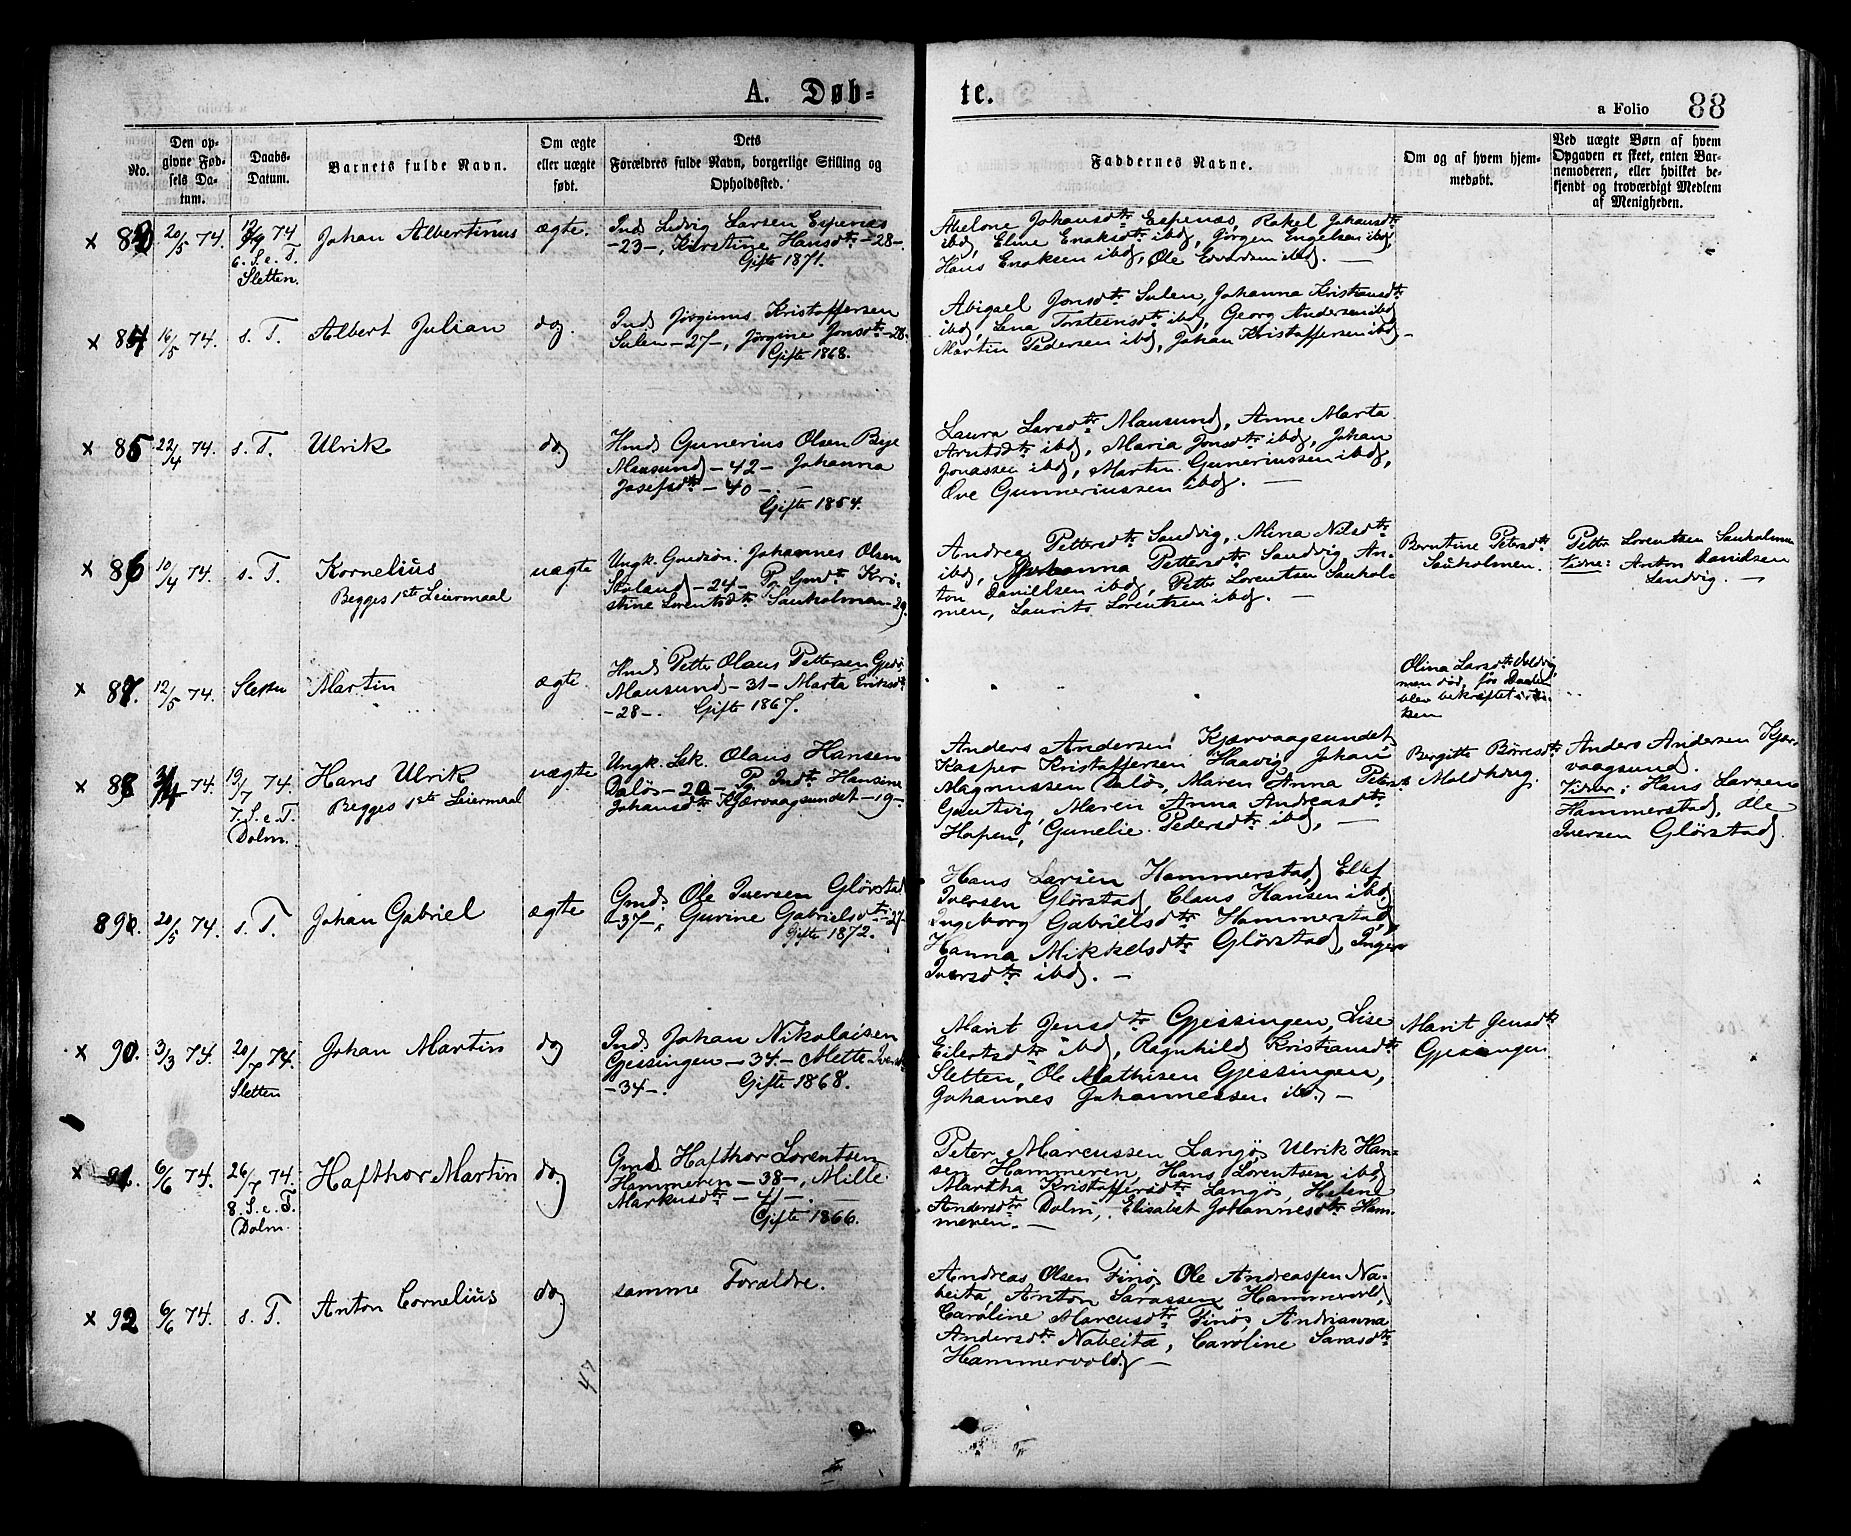 A. Døb-
te.
a Folio 88
No.
Den op-
givne Fød-
sels Da-
tum.
Daabs-
Datum.
Barnets fulde Navn.
Om ægte
eller uægte
født.
Dets
Forældres fulde Navn, borgerlige Stilling og
Opholdssted.
Faddernes Navne.
Om og af hvem hjem-
medøbt.
Ved uægte Børn af hvem
Opgaven er skeet, enten Bar-
nemoderen, eller hvilket be-
kjendt og troværdigt Medlem
af Menigheden.
× 83 20/5 74.
74
6. S. e. T.
Sletten.
Johan Albertinus
ægte.
Ind. Ludvig Larsen Espenæs
-23-, Kirstine Hansdtr -28-.
Gifte 1871.
Abelone Johansdtr Espenæs, Rakel Johansdtr
ibd, Eline Enoksdtr ibd, Jørgen Engelsen ibd,
Hans Enoksen ibd, Ole Edvardsen ibd. —
× 84 16/5 74.
s. T.
Albert Julian
do.
Ind. Jørginus Kristoffersen
Sulen -27-, Jørgine Jonsdtr -28.
Gifte 1868.
Abigael Jonsdtr Sulen, Johanna Kristiansdtr
ibd, Lena Torsteinsdtr ibd, Georg Andersen ibd,
Martin Pedersen ibd, Johan Kristoffersen ibd. —
× 85 22/4 74.
s. T.
Ulrik
do
Hmd. Gunerius Olsen Bye
Mausund -42- Johanna
Josefsdtr -40-. —
Gifte 1854.
Laura Larsdtr Mausund, Anne Marta
Arntsdtr ibd, Maria Jonsdtr ibd, Johan
Jonassen ibd, Martin Guneriussen ibd,
Ove Gunneriussen ibd. —
× 86 10/4 74.
s. T.
Kornelius
Begges 1ste Leiermaal
uægte
Ungk. Gmdsøn. Johannes Olsen
Stoland -24- Pg. Gmdtr Kri-
stine Lorentsdtr Sauholman -29.
Andrea Pettersdtr Sandvig, Mina Nilsdtr
ibd, Johanna Pettersdtr Sandvig, An-
ton Daniellsen ibd, Petter Lorentsen Sauhol-
men, Laurits Lorentsen ibd. —
Berntine Petersdtr
Sauholmen.
Petter Lorentsen Sauholmen
Vidne: Anton Danielsen
Sandvig. —
× 87. 12/5 74.
Sletten
Martin
ægte.
Hmd. Petter Olaus Pettersen
Mausund -31- Marta Eriksdtr
-28-. Gifte 1867.
Olina Larsdtr
men død, før Daaben
blev bekræftet i Kir-
ken
× 88 4 74
19/7 74.
7. S. e. T.
Dolm.
Hans Ulrik
Begges 1ste Leiermaal
uægte.
Ungk. Olaus Hansen
Daløs -20- Pg. Indtr Hansine
Johansdtr Kjærvaagsundet -19-
Anders Andersen Kjærvaagsundet
Kasper Kristoffersen Haavig, Johan
Magnussen Daløs, Maren Anna Petersdtr
Gautvig, Maren Anna Andreasdtr
Hopen, Gunelie Pedersdtr ibd, —
Birgitte Børresdtr
Meldhaug.
Anders Andersen Kjær-
vaagsund.
Vidner: Hans Larsen
Hammerstad, Ole
Iversen Glørstad.
89. 20/5 74.
s. T.
Johan Gabriel
ægte
Gmd. Ole Iversen Glørstad
-37-, Gurine Gabrielsdtr -27-
Gifte 1872.
Hans Larsen Hammerstad, Ellef
Iversen Glørstad, Claus Hansen ibd,
Ingeborg Gabrielsdtr Hammerstad,
Hanna Mikkelsdtr Glørstad, Inger
Iversdtr ibd. —
× 90. 3/3 74.
20/7 74.
Sletten
Johan Martin
do
Ind. Johan Nikolaisen
Gjessingen -34- Mette Iversdtr
-34-. Gifte 1868.
Marit Jensdtr Gjessingen, Lise
Eilertsdtr ibd, Ragnhild Kristiansdtr
Sletten, Ole Mathisen Gjessingen,
Johannes Johannessen ibd. —
Marit Jensdtr
Gjessingen
× 91. 6/6 74.
26/7 74.
8. S. e. T.
Dolm.
Hafthor Martin
do.
Gmd. Hafthor Lorentsen
Hammeren -38-, Mille
Markusdtr -41-.
Gifte 1866.
Peter Marcussen Langø, Ulrik Han-
sen Hammeren, Hans Lorentsen ibd,
Martha Kristoffersdtr Langø, Helene
Andersdtr Dolm, Elisabet Johannesdtr Ham-
meren. —
× 92 6/6 74.
s. T.
Anton Cornelius
do
samme Forældre.
Andreas Olsen Finø, Ole Andreassen Na-
beita, Anton Sarassen Hammervold,
Caroline Marcusdtr Finø, Andrianna
Andersdtr Nabeita, Caroline Sarasdtr
Hammervold. —
47